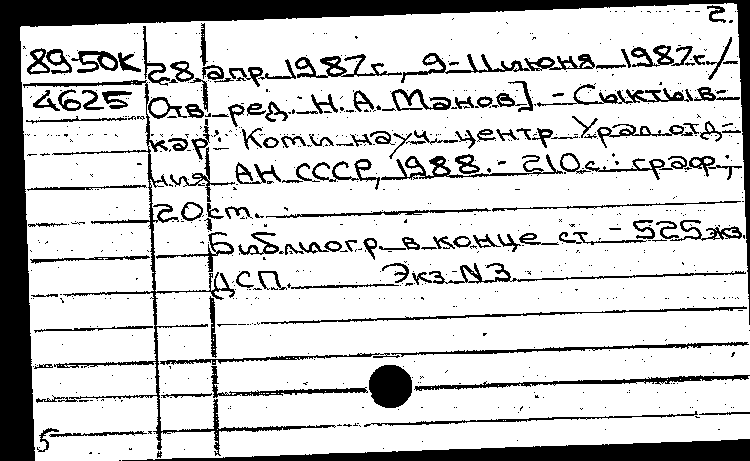 2.
89-50К 28 апр. 1987г., 9-11 июня 1987г./
4625 Отв. ред. Н.А. Манов]. - Сыктыв-
кар: Коми науч. центр Урал. отд-
ния АН СССР, 1988. - 210с.: граф.;
20 см.
Библиогр. в конце ст. - 525 экз.
ДСП. Экз. N3
5